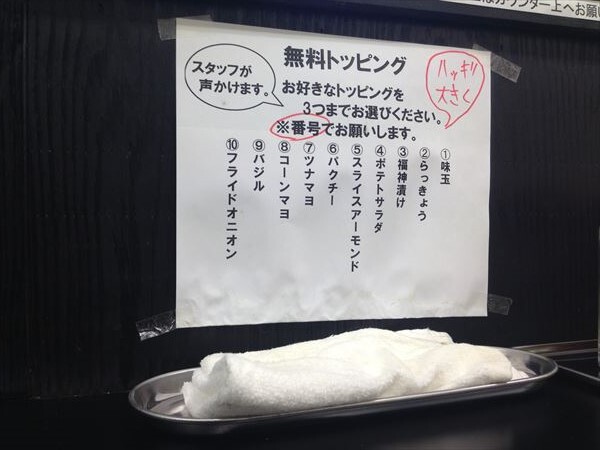 は カウンター上へお願い
無料トッピング
スタッフが
声かけます。
お好きなトッピングを
3つまでお選びください。
※番号でお願いします。
ハッキリ
大きく
①味玉
②らっきょう
③福神漬け
④ポテトサラダ
⑤スライスアーモンド
⑥パクチー
⑦ツナマヨ
⑧コーンマヨ
⑨バジル
⑩フライドオニオン